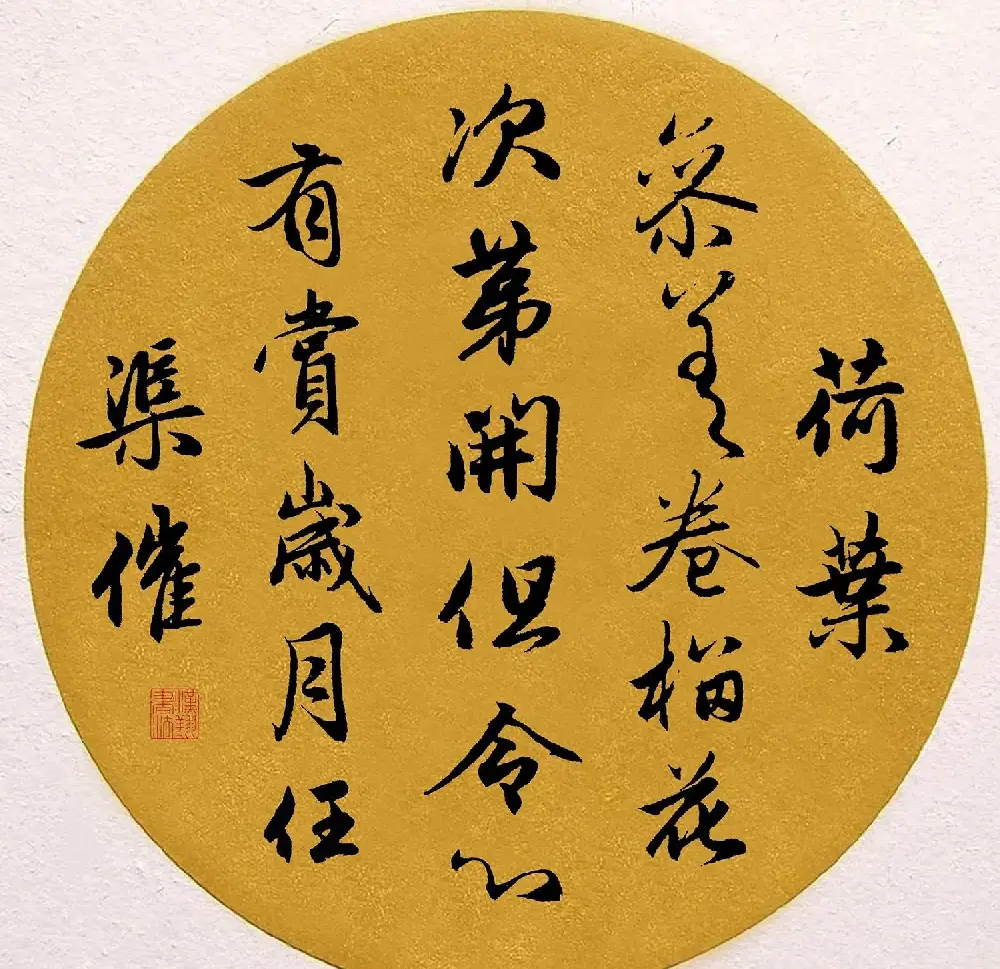 荷葉
參差卷榴花
次第開但令心
有賞歲月任
渠催
漢翔書法